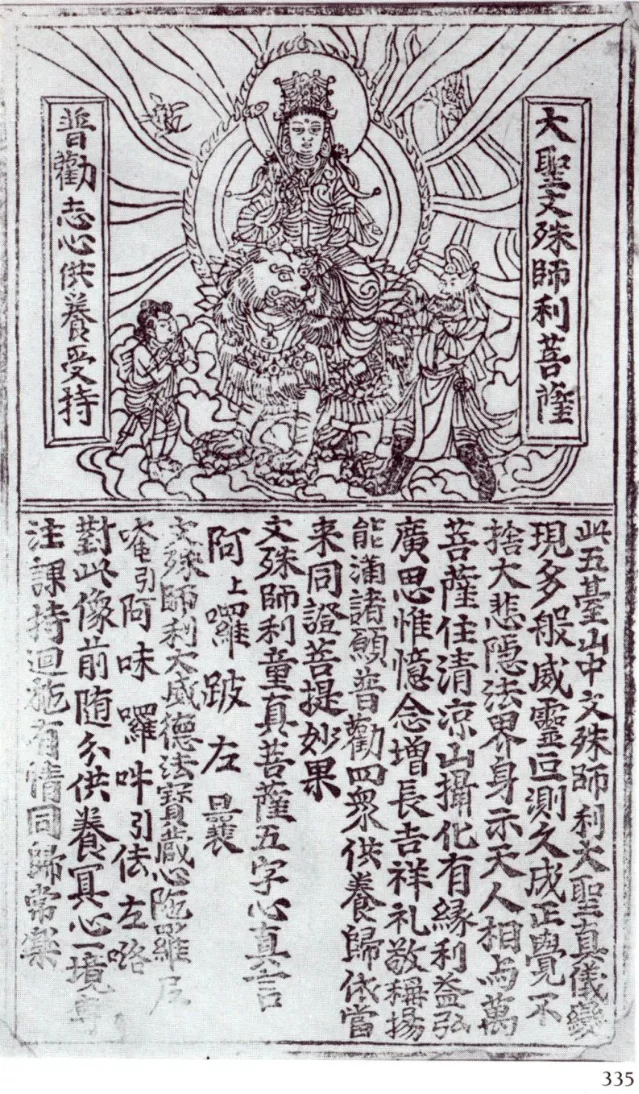 大聖文殊師利菩薩
普勸志心供養受持
此五臺山中文殊師利大聖真儀變
現多般威靈叵測久成正覺不
捨大悲隱法界身示天人相与萬
菩薩住清凉山攝化有緣利益弘
廣思惟憶念增長吉祥礼敬稱揚
能滿諸願普勸四衆供養歸依當
来同證菩提妙果
文殊師利童真菩薩五字心真言
阿上囉跛左曩
文殊師利大威德法寶藏心陁羅尼
唵引阿味囉吽引佉左咯
對此像前随分供養冥心一境專
注課持迴施有情同歸常樂
335